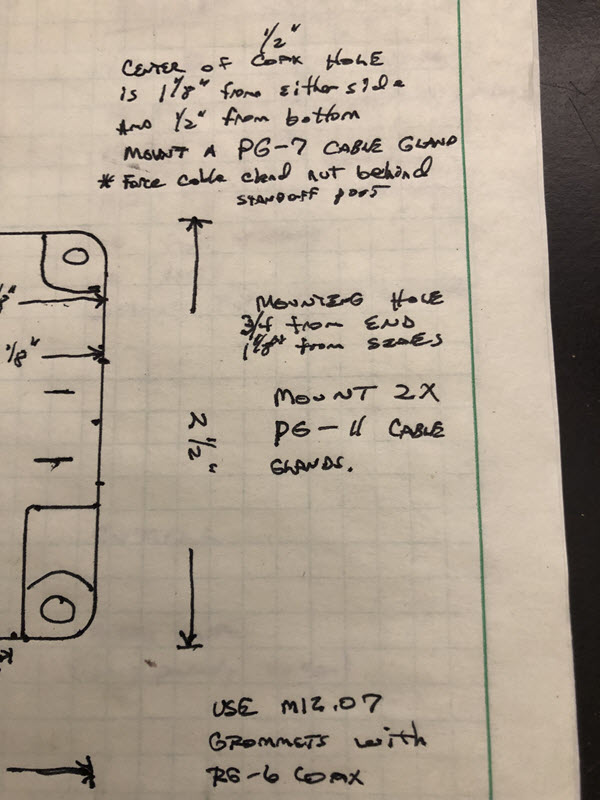 1/2"
CENTER OF COAX HOLE
is 1 1/8" from either side
AND 1/2" from bottom
MOUNT A PG-7 CABLE GLAND
* Force cable gland nut behind
STANDOFF
MOUNTING HOLE
3/4 from END
1 1/8" from SIDES
1/8"
MOUNT 2X
PG-11 CABLE
GLANDS.
2 1/2"
USE M12.07
GROMMETS with
RG-6 COAX